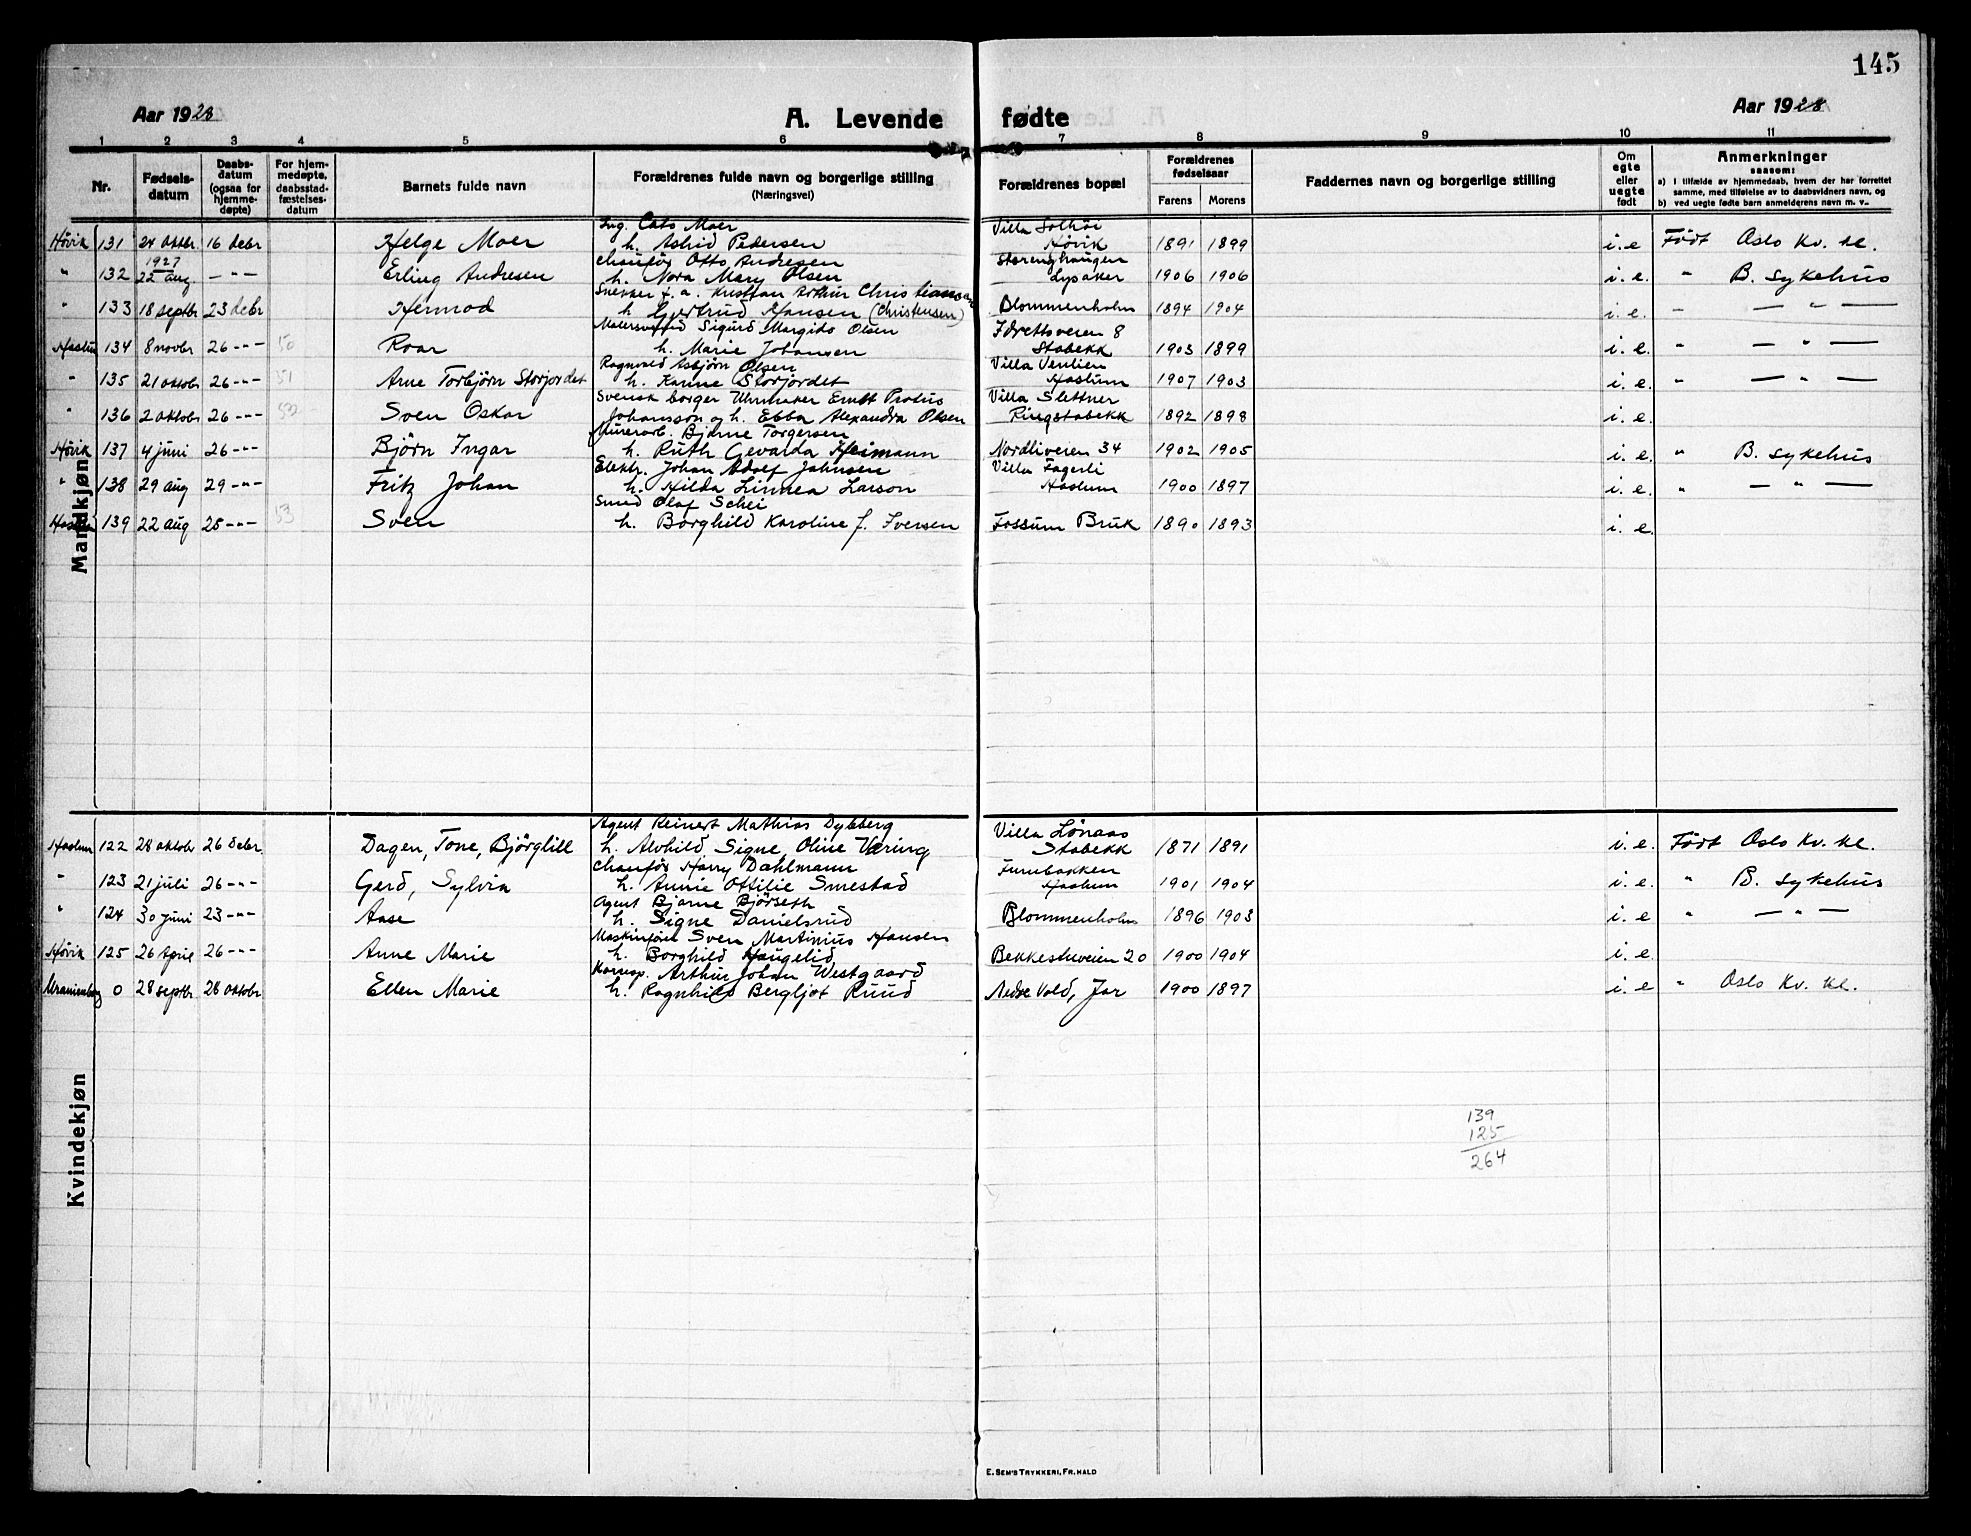 145
Aar 1928 A. Levende fødte Aar 1928
1 2 3 4 5 6 7 8 9 10 11
Nr. Fødselsdatum Daabsdatum (ogsaa for hjemmedøpte) For hjemmedøpte, daabsstadfæstelsesdatum Barnets fulde navn Forældrenes fulde navn og borgerlige stilling (Næringsvei) Forældrenes bopæl Forældrenes fødselsaar Farens Morens Faddernes navn og borgerlige stilling Om egte eller uegte født Anmerkninger saasom:
a) I tilfælde av hjemmedaab, hvem der har forrettet samme, med tilføielse av to daabsvidners navn, og
b) ved uegte fødte barn anmelderens navn m. v.
Mandkjøn
Ing. Cato Moer Villa Solhöi
Høvik 131 24 oktbr. 16 debr Helge Moer h. Astrid Pedersen Høvik 1891 1899 i. e Født Oslo Kv. kl.
1927 Chauför Otto Andresen Storenghaugen
" 132 22 aug. — " — Erling Andresen h. Nora Mary Olsen Lysaker 1906 1906 i. e. " B. Sykehus
Snekker f. a. Kristian Arthur Christiansen
" 133 18 septbr 23 debr Hermod h. Gjertrud Hansen (Christensen) Blommenholm 1894 1904 i. e. " — " —
Malersvend Sigurd Margido Olsen Idrettsveien 8
Haslum 134 8 novbr 26 -"- 50 Roar h. Marie Johansen Stabekk 1903 1899 i. e. " — " —
Ragnvald Asbjörn Olsen Villa Verdien
" 135 21 oktobr 26 -"- 51 Arne Torbjörn Storjordet h. Karine Storjordet Haslum 1907 1903 i. e. " — " —
Svensk borger Uhrmaker Ernst Protus Villa Slettner
" 136 2 oktobr 26 -"- 52 Sven Oskar Johansson og h. Ebba Alexandra Olsen Ringstabekk 1892 1898 i. e.
Murerarb. Bjarne Torgersen
Høvik 137 4 juni 26 -"- Björn Ingar h. Ruth Gevalda Heimann Nordliveien 34 1902 1905 i. e. " B. Sykehus
Elektr. Johan Adolf Johnsen Villa Fagerli
" 138 29 aug 29 -"- Fritz Johan h. Hilda Linnea Larson Haslum 1900 1897 i. e. " — " —
Smed Olaf Schei
Haslum 139 22 aug 25 -"- 53 Sven h. Borghild Karoline f. Iversen Fossum Bruk 1890 1893 i. e.
Kvindekjøn
Agent Reinert Mathias Dybberg Villa Lönaas
Haslum 122 28 oktobr 26 debr Dagen, Tone, Björghill h. Alvhild Signe Oline Væring Stabekk 1871 1891 i. e. Født Oslo Kv. kl.
Chauför Harry Dahlmann Furubakken
" 123 21 juli 26 -"- Gerd, Sylvia h. Annie Ottilie Smestad Haslum 1901 1904 i. e. " B. Sykehus
Agent Bjarne Björseth
" 124 30 juni 23 -"- Aase h. Signe Danielsrud Blommenholm 1896 1903 i. e " — " —
Maskinför Sven Martinius Hansen
Høvik 125 26 April 26 -"- Anne Marie h. Borghild Haugelid Bekkestuveien 20 1900 1904 i. e.
Korresp. Arthur Johan Westgaard
Uranienborg 0 28 septbr 28 oktobr Ellen Marie h. Ragnhild Bergljot Ruud Nedre Vold, Jar 1900 1897 i. e " Oslo Kv. kl.
139
125
264
E. SEM'S TRYKKERI, FR.HALD